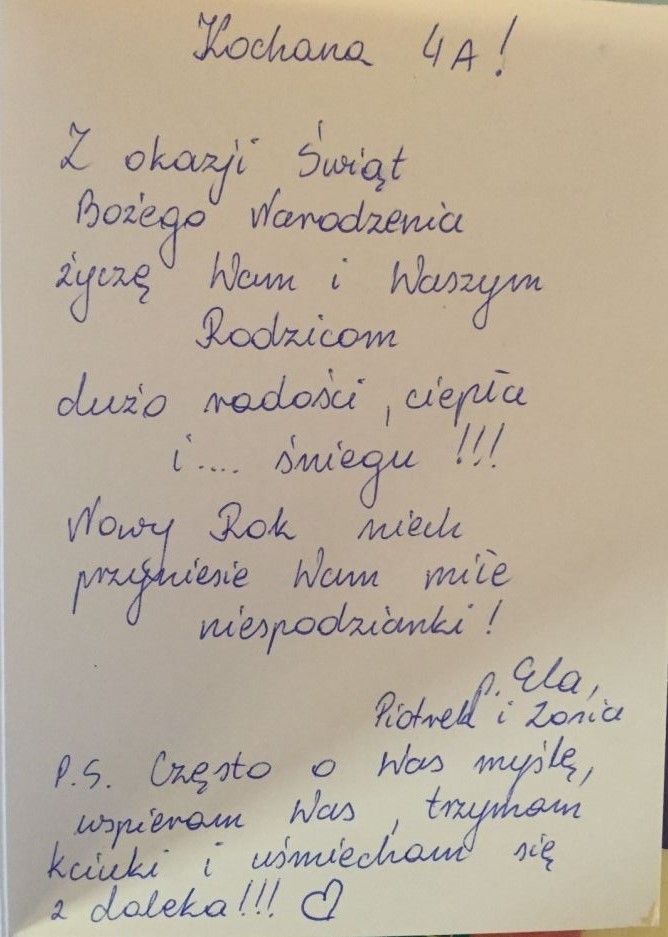 Kochana 4A!
Z okazji Świąt
Bożego Narodzenia
życzę Wam i Waszym
Rodzicom
dużo radości, ciepła
i.... śniegu !!!
Nowy Rok niech
przyniesie Wam miłe
niespodzianki!
p. Ela,
Piotrek i Zosia
P.S. Często o Was myślę,
wspieram Was, trzymam
kciuki i uśmiecham się
z daleka!!! ♡